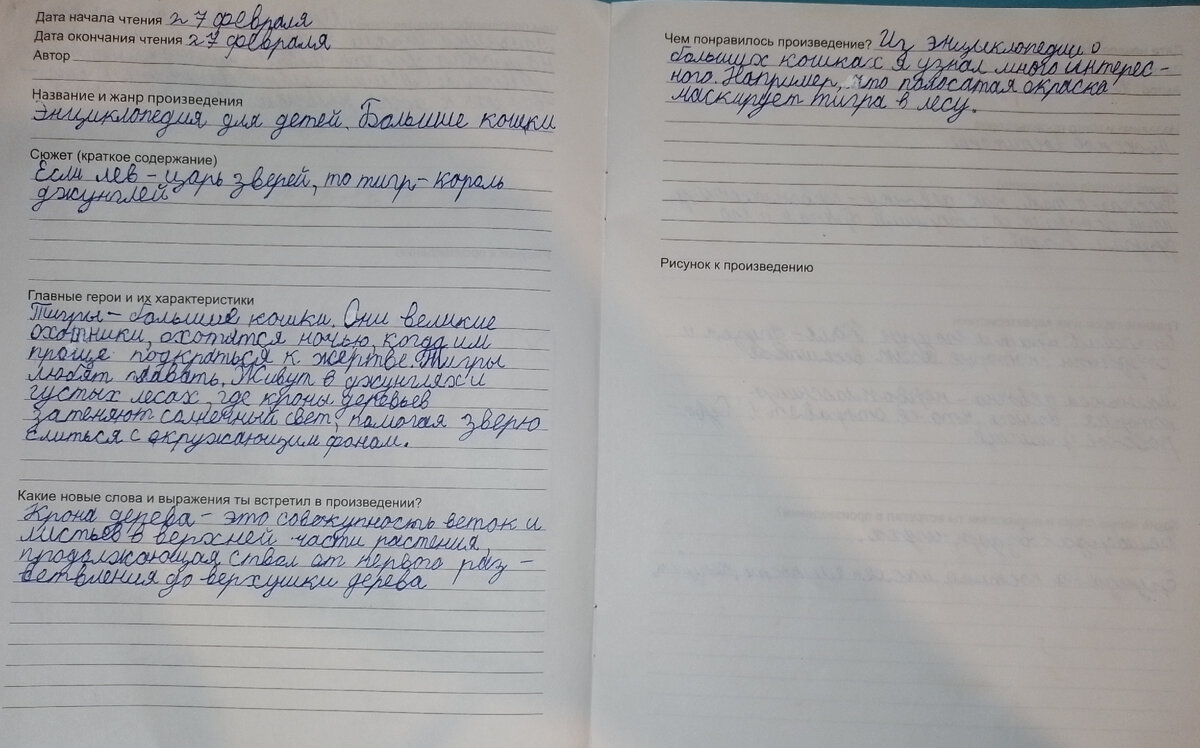 Дата начала чтения 27 февраля
Дата окончания чтения 27 февраля
Автор
Название и жанр произведения
Энциклопедия для детей. Большие кошки
Сюжет (краткое содержание)
Если лев - царь зверей, то тигр - король
джунглей
Главные герои и их характеристики
Тигры - большие кошки. Они великие
охотники, охотятся ночью, когда им
проще подкраться к жертве. Тигры
любят плавать. Живут в джунглях и
густых лесах, где кроны деревьев
затеняют солнечный свет, помогая зверю
слиться с окружающим фоном.
Какие новые слова и выражения ты встретил в произведении?
Крона дерева - это совокупность веток и
листьев в верхней части растения,
продолжающая ствол от первого раз-
ветвления до верхушки дерева
Чем понравилось произведение? Из энциклопедии о
больших кошках я узнал много интерес-
ного. Например, что полосатая окраска
маскирует тигра в лесу.
Рисунок к произведению